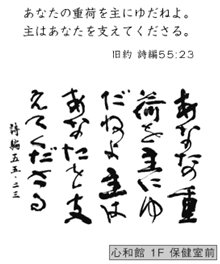 あなたの重荷を主にゆだねよ。
主はあなたを支えてくださる。
旧約 詩編55:23
あなたの重
荷を主にゆ
だねよ主は
あなたを支
えてくださる
詩編五五・二三
心和館 1F 保健室前